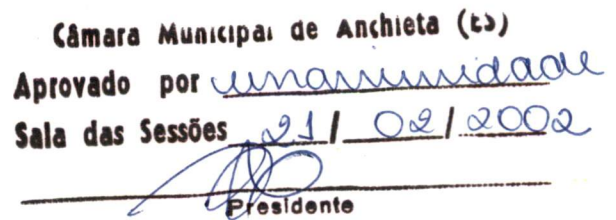 Câmara Municipal de Anchieta (ES)
Aprovado por unanimidade
Sala das Sessões 21 / 02 / 2002
Presidente